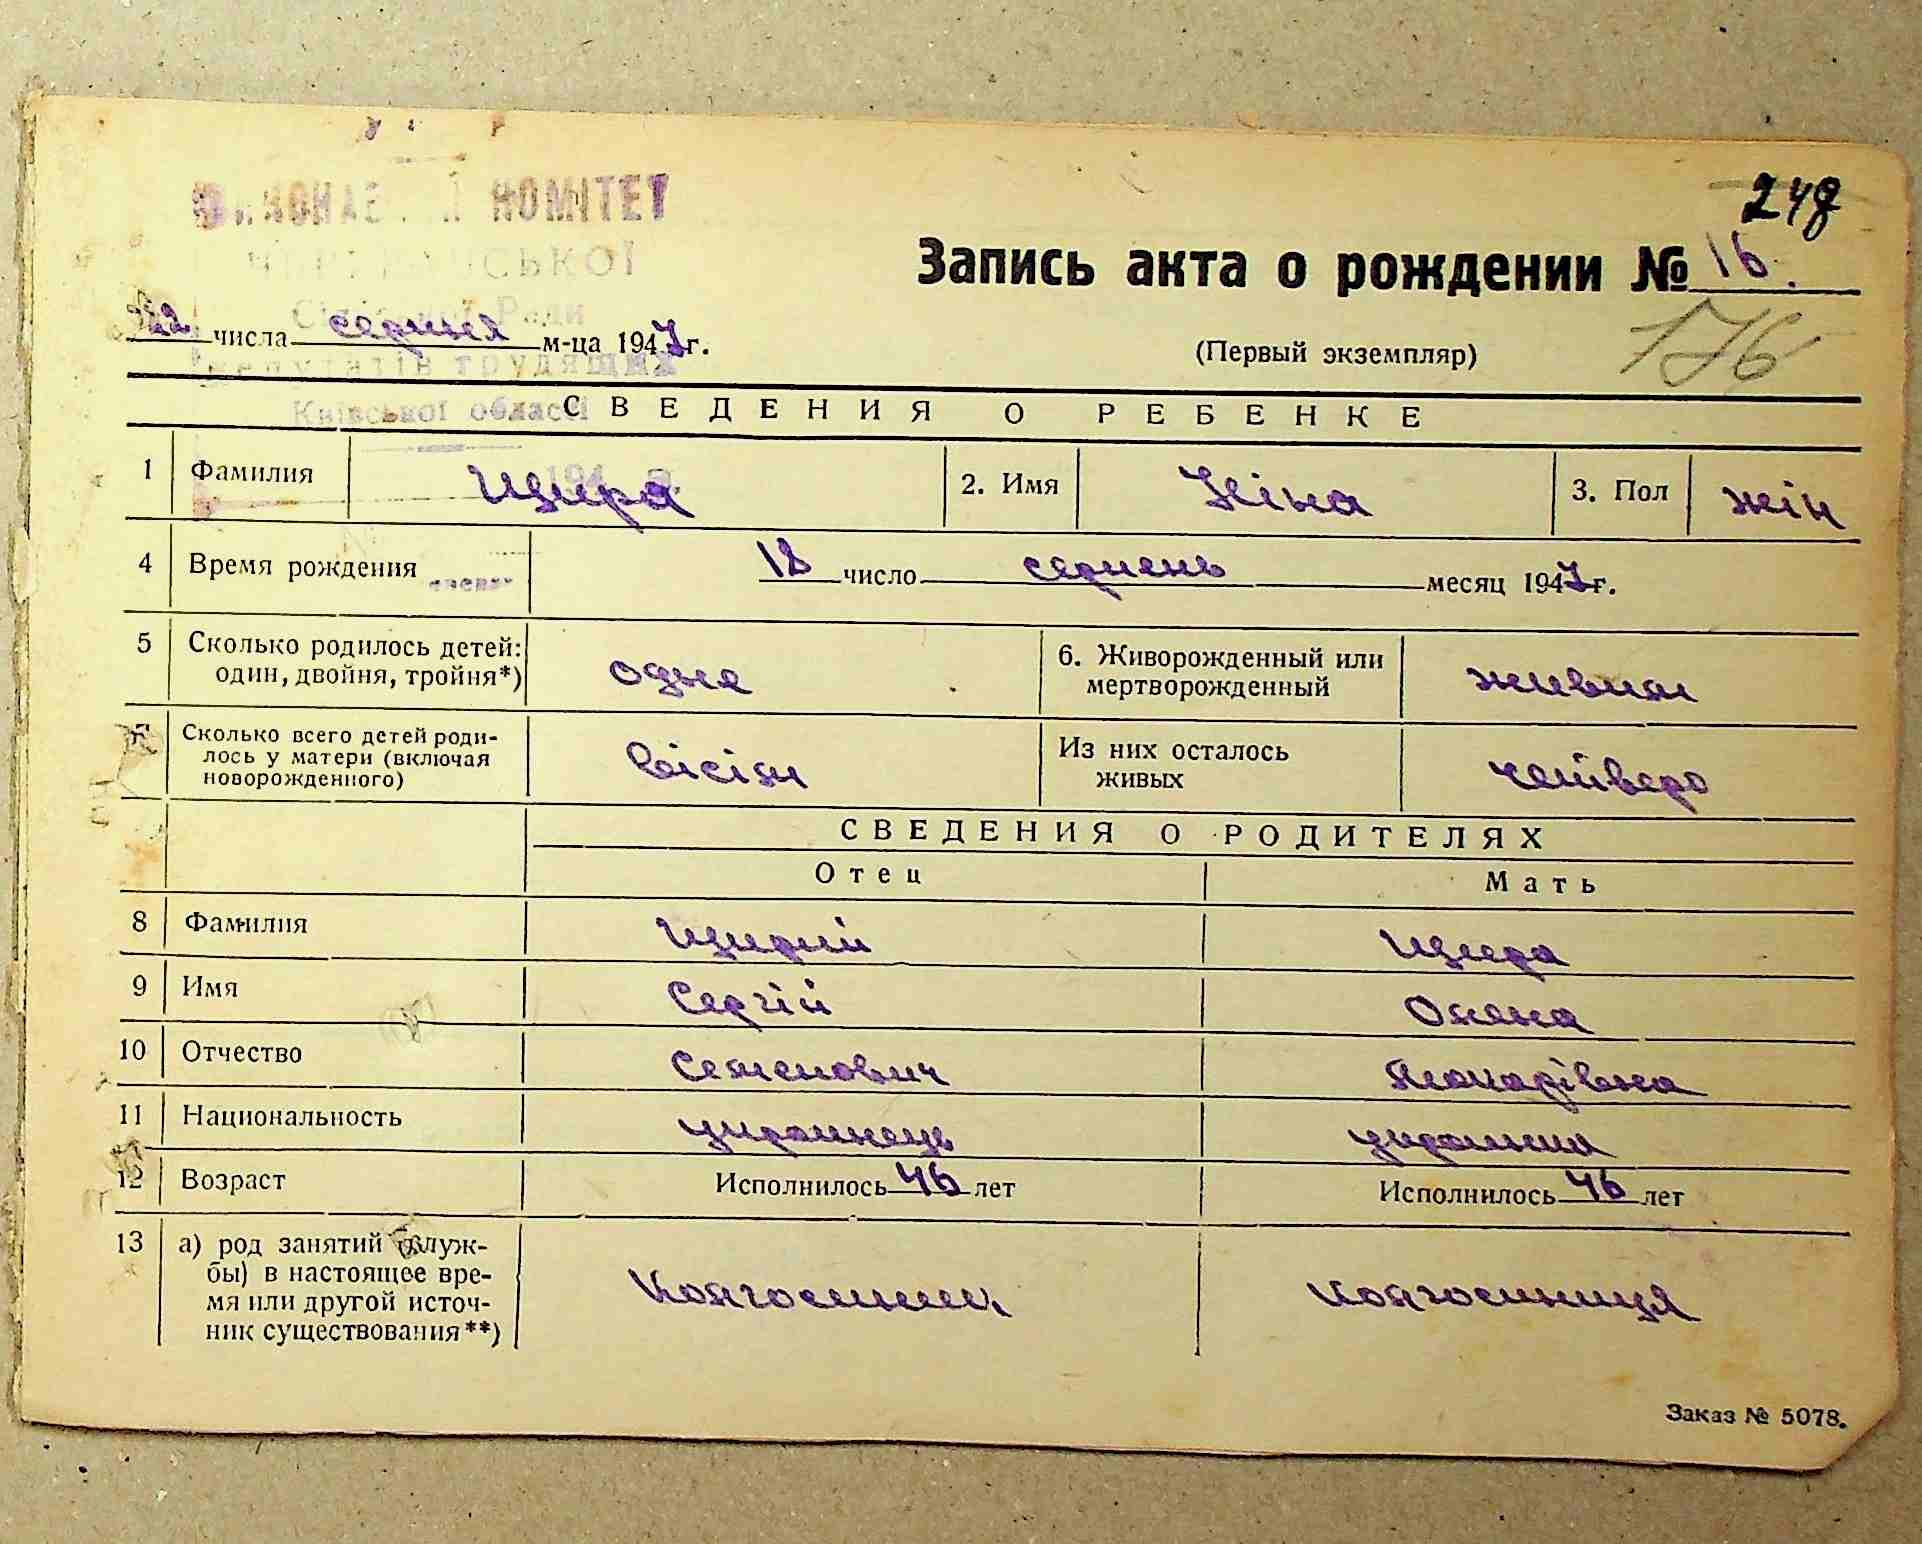 КОМІТЕТ
СЬКОЇ
Ради
депутатів трудящих
Київської області
248
Запись акта о рождении № 16.
22 числа серпня м-ца 1947 г.
(Первый экземпляр)
176
СВЕДЕНИЯ О РЕБЕНКЕ
1 Фамилия Щира 2. Имя Ніна 3. Пол жін
4 Время рождения 18 число серпень месяц 1947 г.
5 Сколько родилось детей: один, двойня, тройня*) одне 6. Живорожденный или мертворожденный живим
Сколько всего детей родилось у матери (включая новорожденного) вісім Из них осталось живых четверо
СВЕДЕНИЯ О РОДИТЕЛЯХ
Отец Мать
8 Фамилия Щирий Щира
9 Имя Сергій Олена
10 Отчество Семенович
11 Национальность украинець украинка
12 Возраст Исполнилось 46 лет Исполнилось 46 лет
13 а) род занятий (служ-
бы) в настоящее вре-
мя или другой источ-
ник существования**) колгоспник колгоспниця
Заказ № 5078.